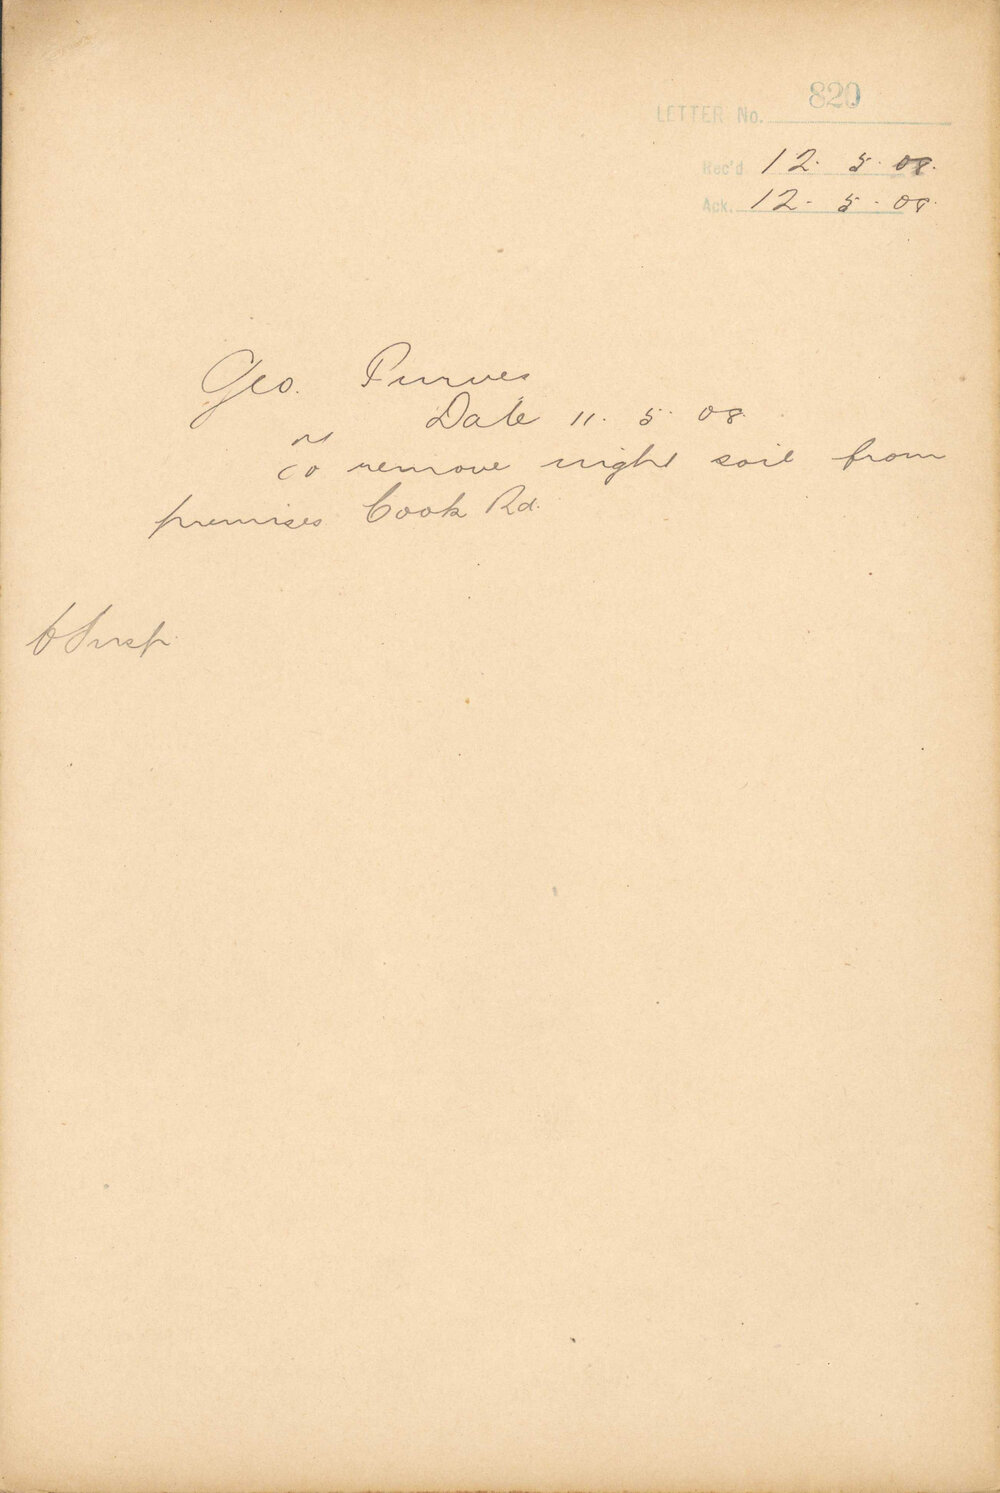 LETTER No. 820
Rec'd 12. 5. 08.
Ack. 12. 5. 08.
Geo. Purves
Date 11. 5. 08.
re
to remove night soil from
premises Cook Rd.
C Insp.